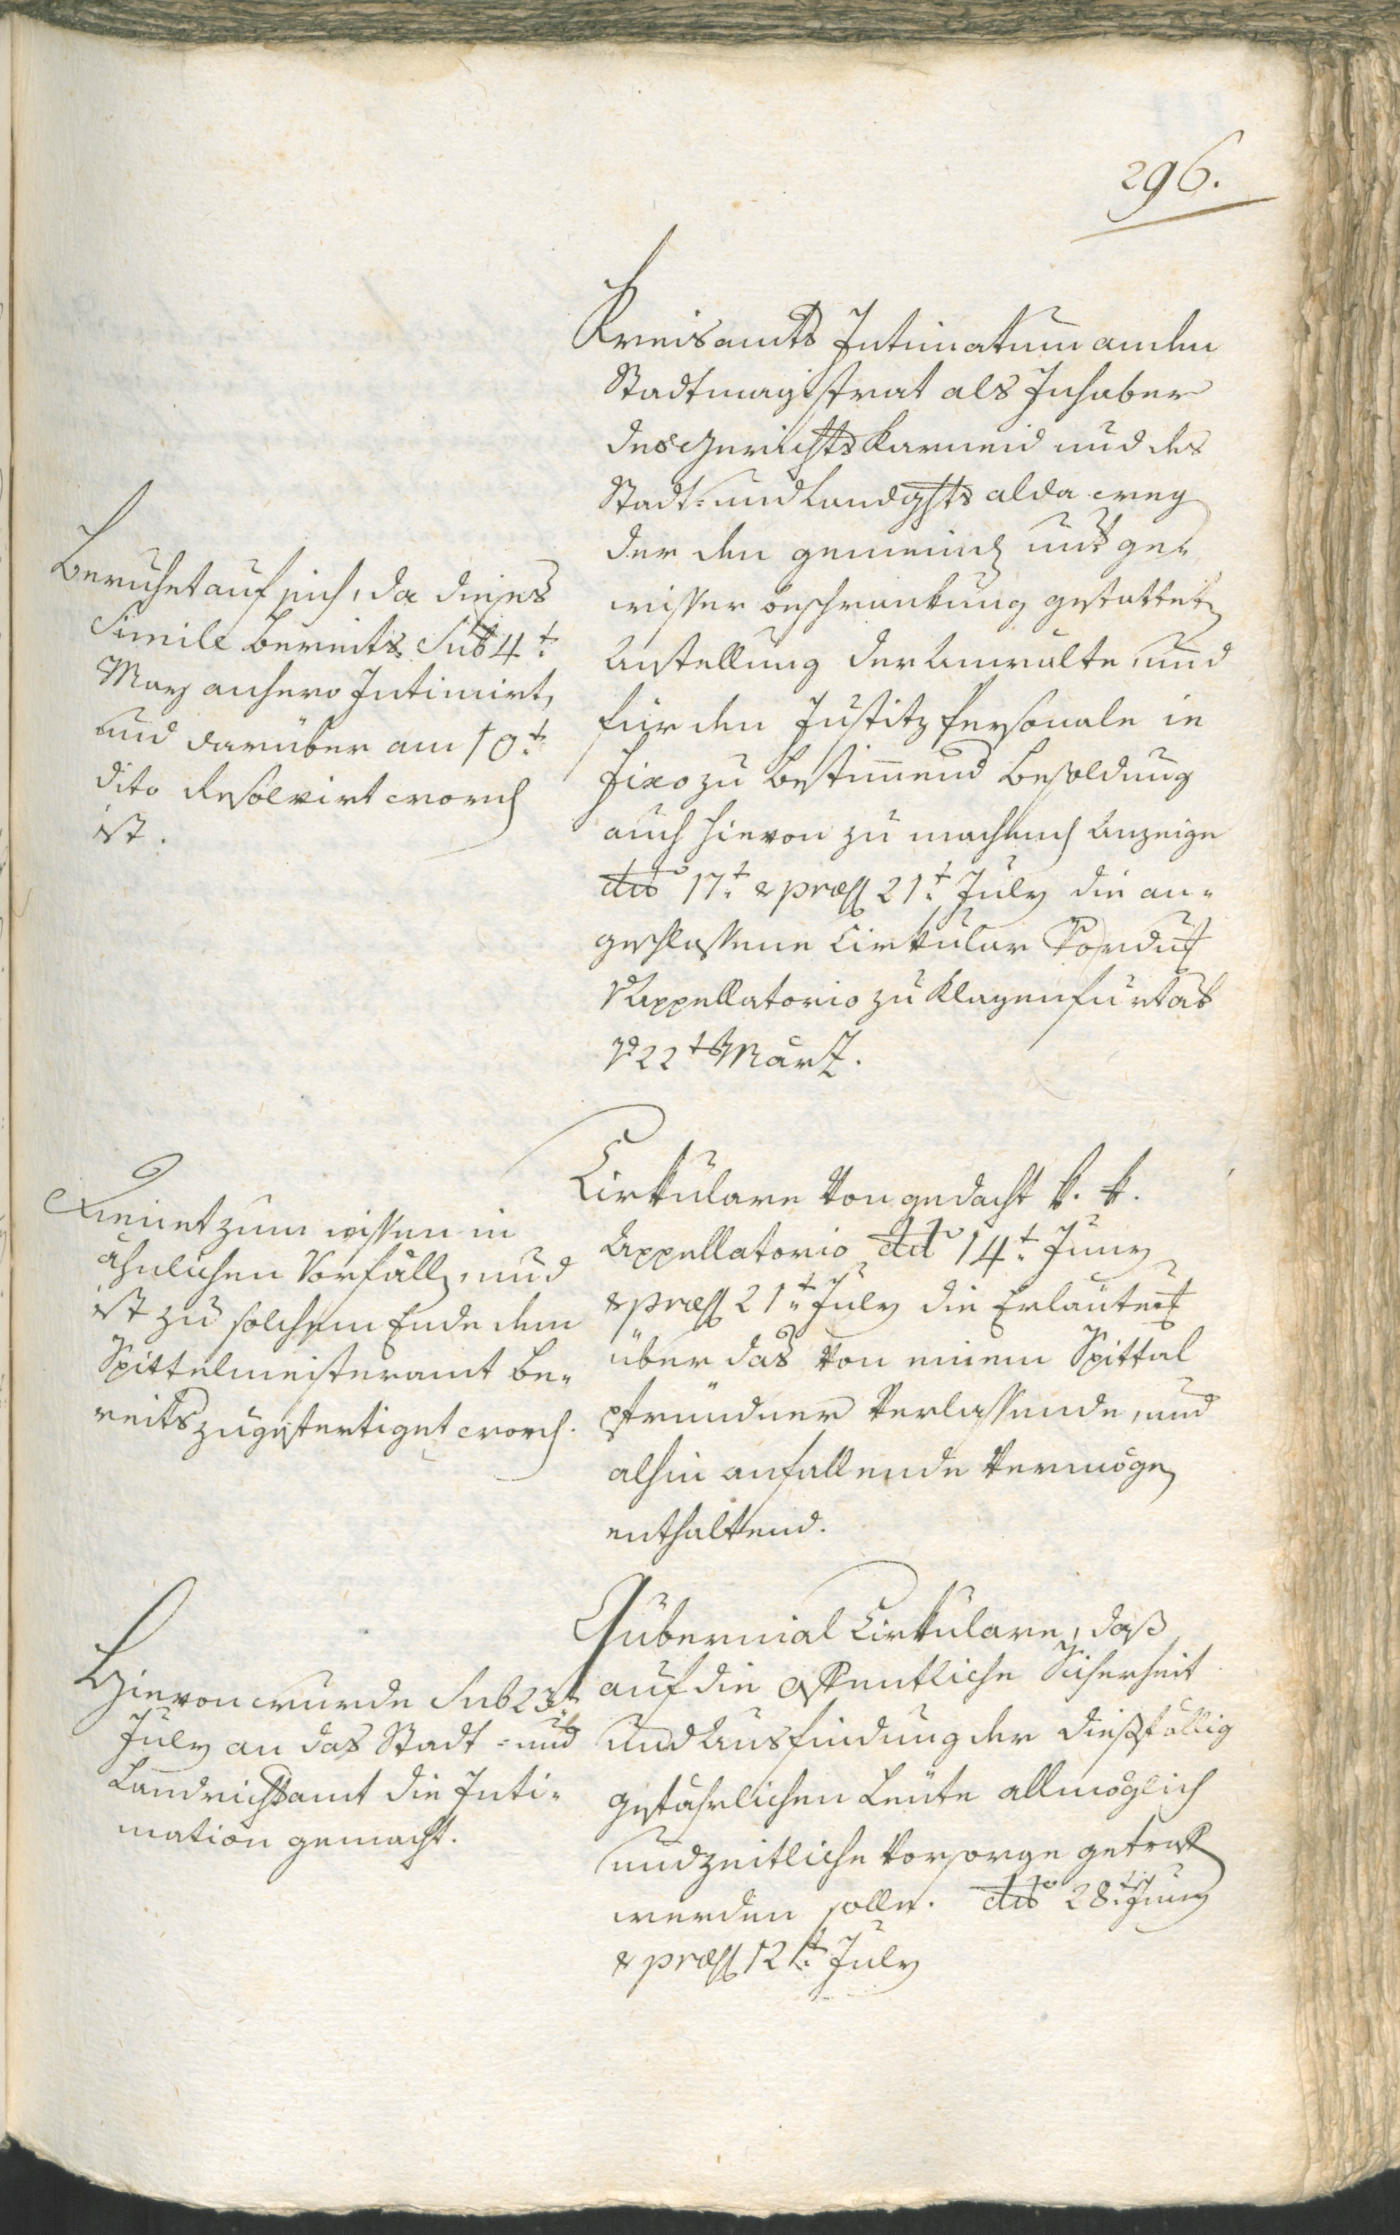 296.
Kreisamts Intimatum an den
Stadtmagistrat als Inhaber
des Gerichts Karneid und des
Stadt- und Landghts alda weg
der den gemeind mit ge-
wisser beschrankung gestattet
Anstellung der Anwalte, und
für den Justitz Personale in
Fixo zu bestimend besoldung
auch hievon zu machend Anzeige
dto 17t & præs 21t July die an-
geschlossene Cirkular Vordn͠g
v Appellatorio zu Klagenfurt ab
v 22t März.
Beruhet auf sich, da dieses
Simile bereits sub 4t
May anhero Intimirt,
und darüber am 10t
dito resolvirt word
ist.
Cirkulare von gedacht k. k.
Appellatorio dto 14t Juny
& præs 21t July die Erläuter͠g
über das von einem Spittal
pfründner verlassende, und
alhin anfallende Vermögen
enthaltend.
Dienet zum wissen in
ähnlichen Vorfäll, und
ist zu solchem Ende dem
Spittelmeisteramt be-
reits zugefertiget word.
Gubernial Cirkulare, daß
auf die öffentliche Sicherheit
und Ausfindung der dießfällig
gefährlichen Leute allmöglich
und zeitliche Vorsorge getroffen
werden solle. dto 28t Juny
& præs 12t July
Hievon wurde sub 23t
July an das Stadt- und
Landrichtamt die Inti-
mation gemacht.